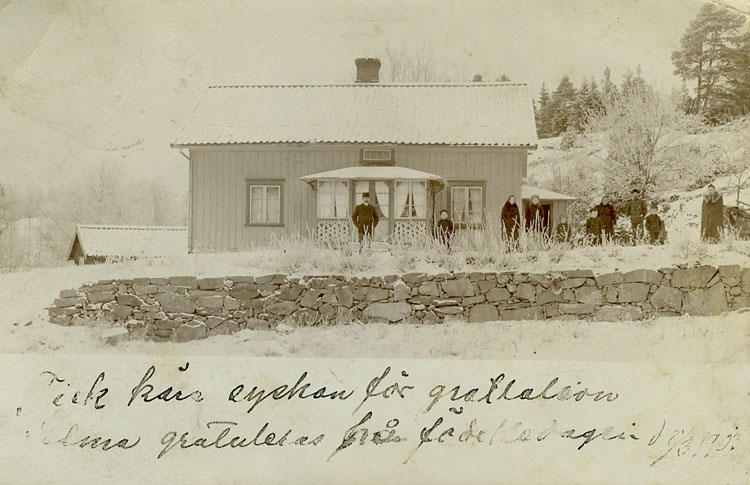 Tack kära syskon för grattulation
Selma gratuleras från födelsedagen d